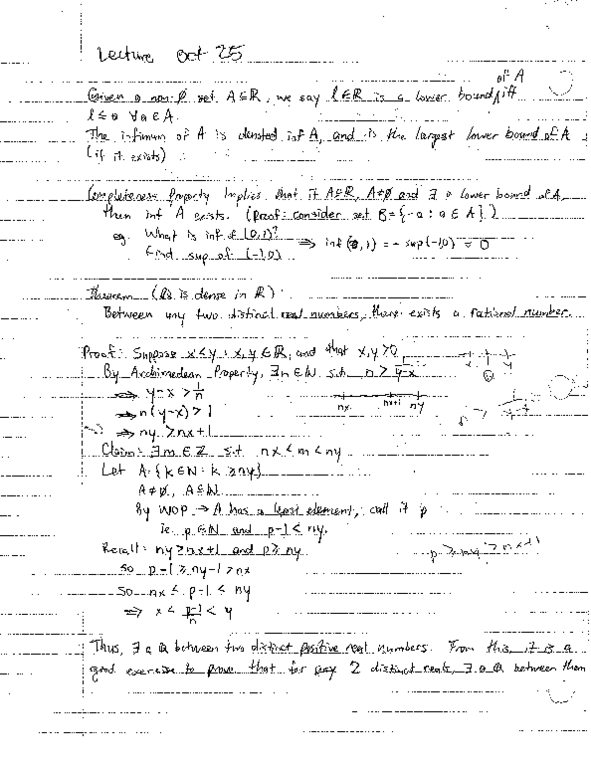 Lecture Oct 25
of A
Given a non-∅ set A⊆ℝ, we say l∈ℝ is a lower bound iff
l ≤ a ∀a∈A.
The infimum of A is denoted inf A, and is the largest lower bound of A
(if it exists)
Completeness Property Implies that if A⊆ℝ, A≠∅ and ∃ a lower bound of A,
then inf A exists. (Proof: consider set B={-a : a∈A}.)
eg. What is inf of (0,1)?
⇒ inf(0,1) = -sup(-1,0) = 0
Find sup of (-1,0)
Theorem (ℚ is dense in ℝ)
Between any two distinct real numbers, there exists a rational number.
Proof: Suppose x<y : x,y∈ℝ, and that x,y>0
By Archimedean Property, ∃n∈ℕ s.t. n > 1/(y-x)
⇒ y-x > 1/n
nx nx+1 ny
⇒ n(y-x) > 1
⇒ ny > nx+1
Claim: ∃m∈ℤ s.t. nx<m<ny
Let A={k∈ℕ : k ≥ ny}
A≠∅, A⊆ℕ
By WOP → A has a least element, call it p
ie. p∈ℕ and p-1 < ny.
Recall: ny > nx+1 and p ≥ ny
p ≥ ny > nx+1
so p-1 ≥ ny-1 > nx
so nx < p-1 < ny
⇒ x < (p-1)/n < y
Thus, ∃ a ℚ between two distinct positive real numbers. From this, it is a
good exercise to prove that for any 2 distinct reals, ∃ a ℚ between them